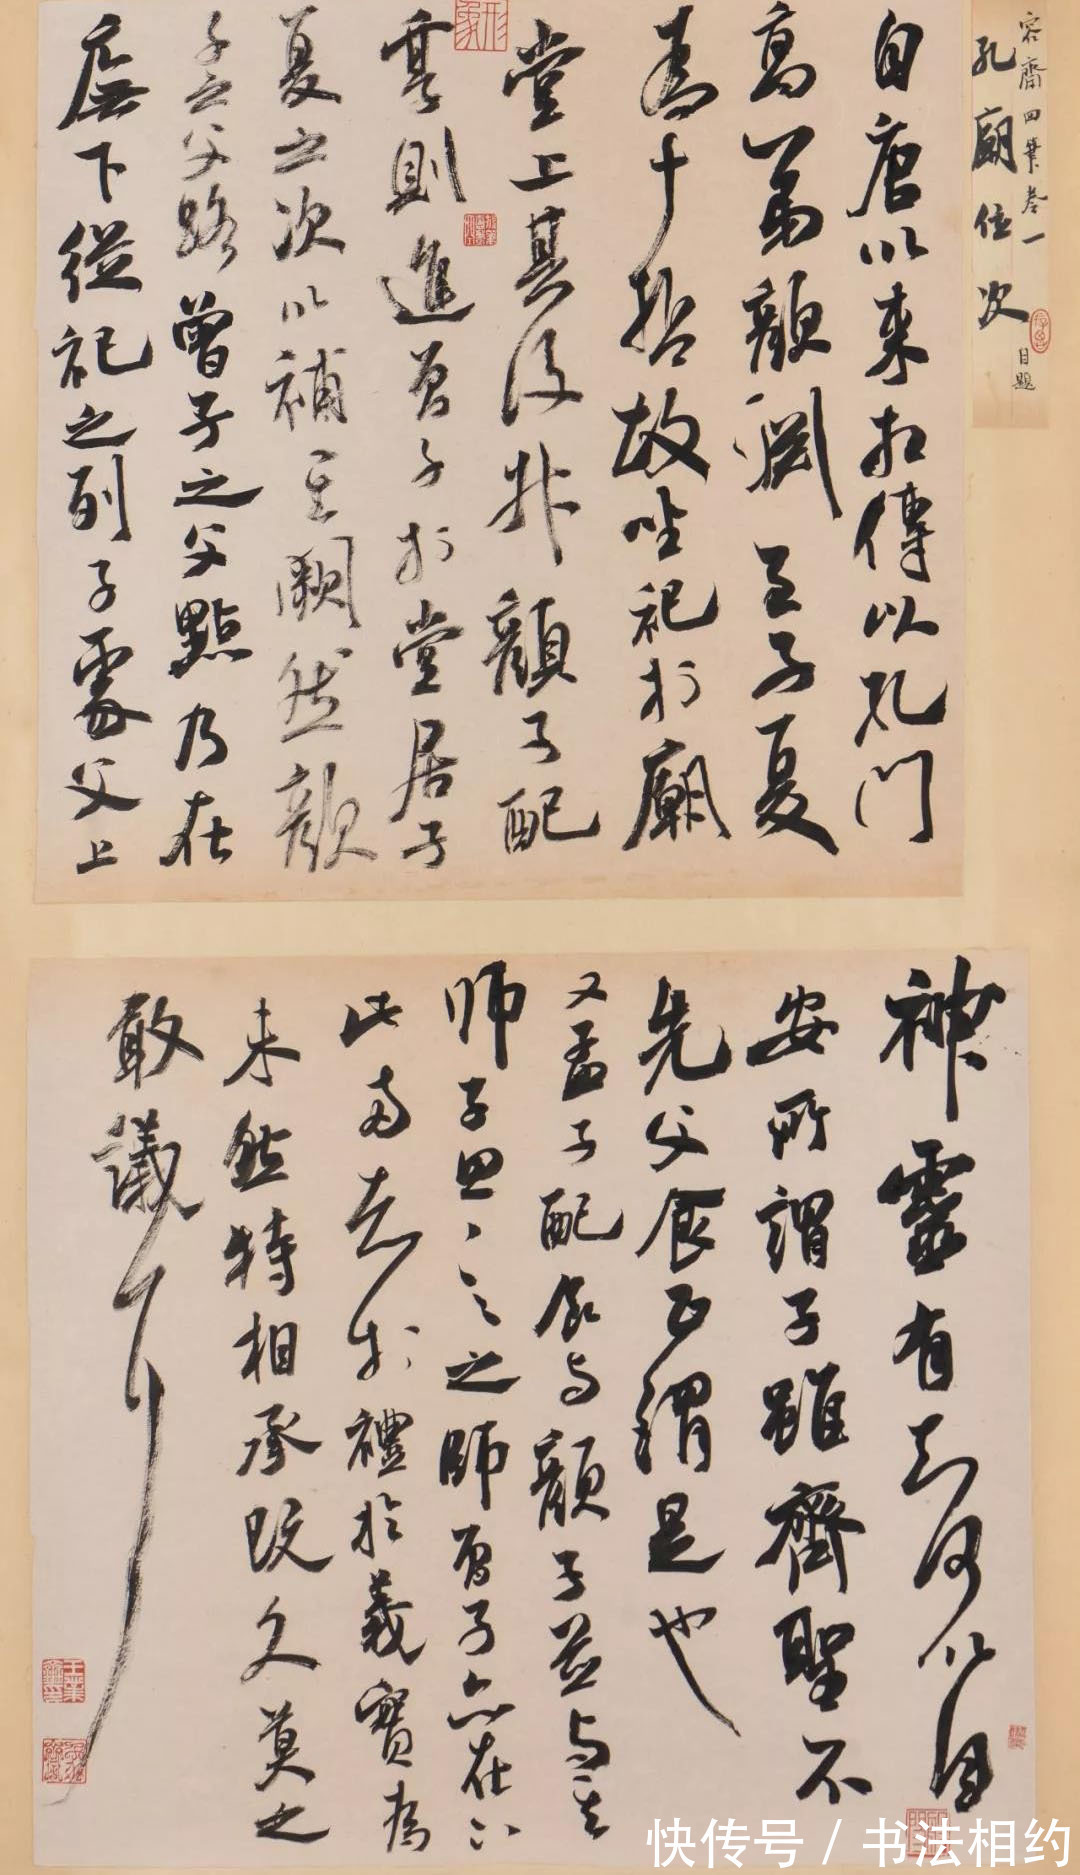 容齋四筆卷一
孔廟位次
自題
自唐以來相傳以孔門
高弟顏淵至子夏
為十哲故坐祀於廟
堂上其後升顏子配
享則進曾子於堂居子
夏之次以補其闕然顏
子之父路曾子之父點乃在
廡下從祀之列子處父上
神靈有知何以自
安所謂子雖齊聖不
先父食正謂是也
又孟子配食與顏子並與其
師子思子思之師曾子亦在下
此兩者於禮於義實為
未然特相承既久莫之
敢議耳
快传号 / 书法相约